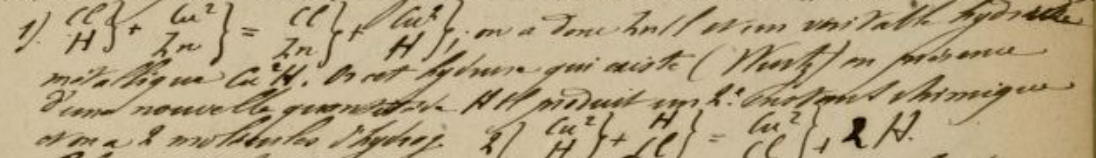 1) Cl H } + Cu² Zn } = Cl Zn } + Cu² H } ; on a donc Zn Cl et un véritable hydrure
métallique Cu²H. Or cet hydrure qui existe (Wurtz) en présence
d'une nouvelle quantité de H Cl produit un 2e instant chimique
et on a 2 molécules d'hydrog. 2) Cu² H } + H Cl } = Cu² Cl } + 2 H.